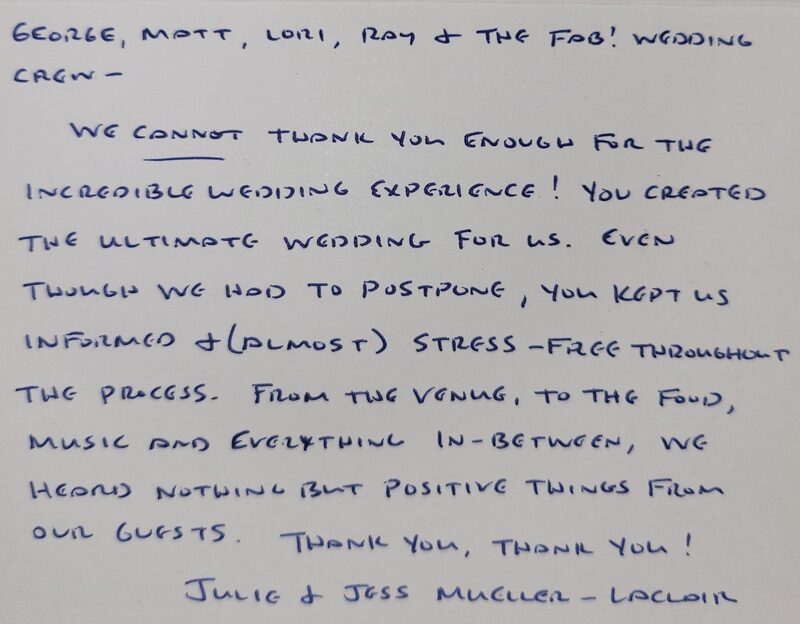 GEORGE, MATT, LORI, RAY & THE FAB! WEDDING
CREW -
WE CANNOT THANK YOU ENOUGH FOR THE
INCREDIBLE WEDDING EXPERIENCE! YOU CREATED
THE ULTIMATE WEDDING FOR US. EVEN
THOUGH WE HAD TO POSTPONE, YOU KEPT US
INFORMED & (ALMOST) STRESS-FREE THROUGHOUT
THE PROCESS. FROM THE VENUE, TO THE FOOD,
MUSIC AND EVERYTHING IN-BETWEEN, WE
HEARD NOTHING BUT POSITIVE THINGS FROM
OUR GUESTS. THANK YOU, THANK YOU!
JULIE & JESS MUELLER - LACLAIR